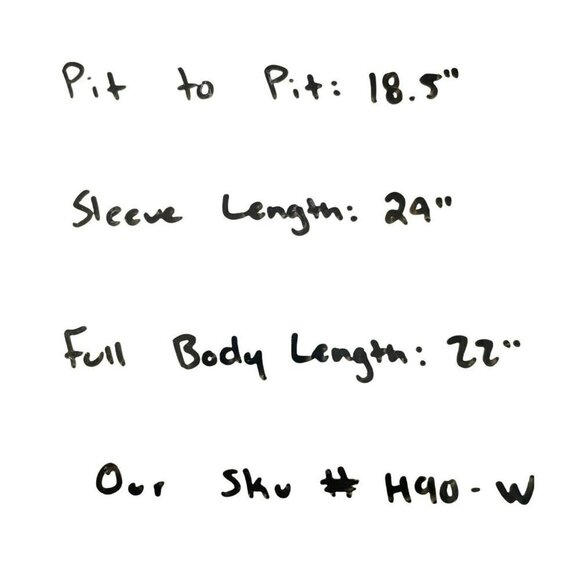 Pit to Pit: 18.5"
Sleeve Length: 24"
Full Body Length: 22"
Our Sku # H90-W